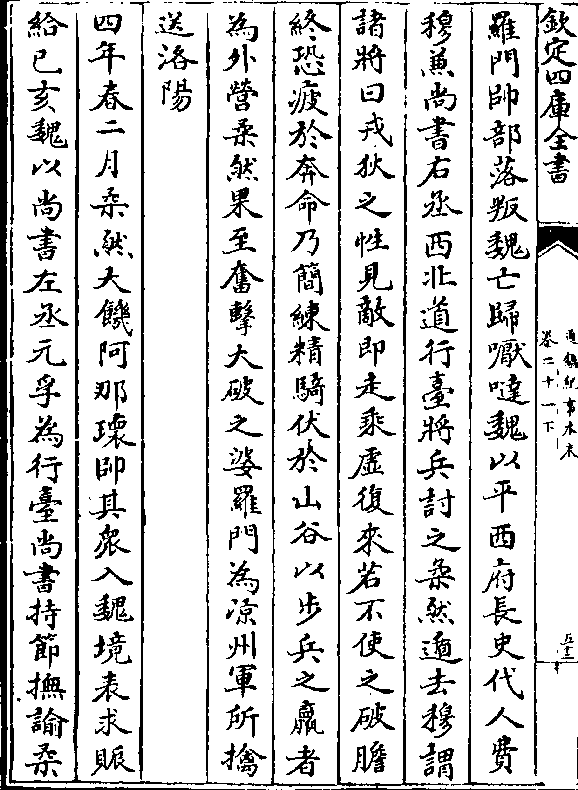 欽定四庫全書
通鑑紀事本末
卷二十一下
羅門帥部落叛魏亡歸嚈噠魏以平西府長史代人費
穆兼尚書右丞西北道行臺將兵討之柔然遁去穆謂
諸將曰戎狄之性見敵即走乘虛復來若不使之破膽
終恐疲於奔命乃簡練精騎伏於山谷以步兵之羸者
為外營柔然果至奮擊大破之婆羅門為涼州軍所擒
送洛陽
四年春二月柔然大饑阿那瓌帥其衆入魏境表求賑
給已亥魏以尚書左丞元孚為行臺尚書持節撫諭柔